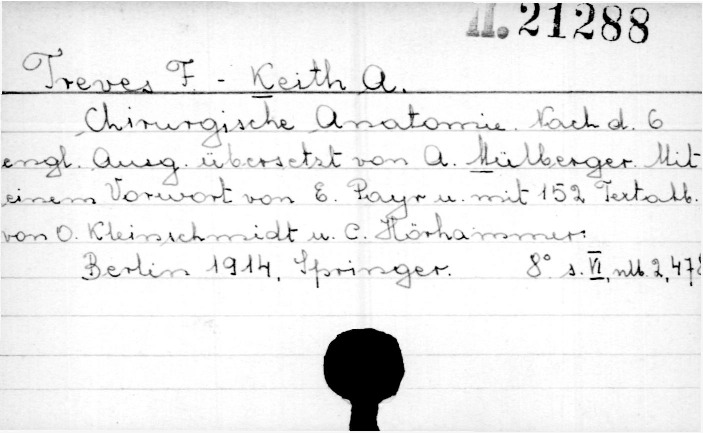 II. 21288
Treves F. - Keith A.
Chirurgische Anatomie. Nach d. 6
engl. Ausg. übersetzt von A. Mülberger. Mit
einem Vorwort von E. Payr u. mit 152 Textabb.
von O. Kleinschmidt u. C. Hörhammer.
Berlin 1914, Springer. 8° s. VI, 2, 478